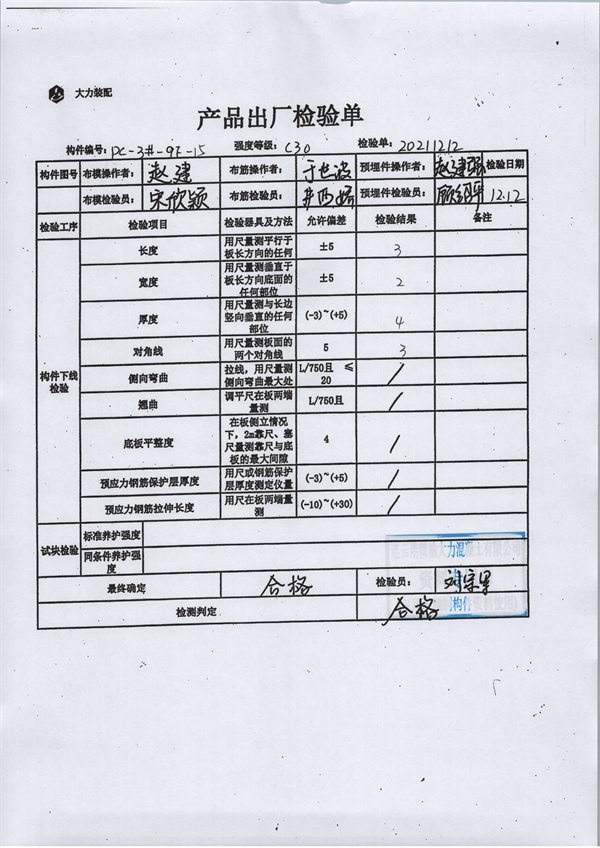 大力装配
产品出厂检验单
构件编号: PC-3#-9F-15 强度等级: C30 检验单: 20211212
构件图号 布模操作者: 赵建 布筋操作者: 于世波 预埋件操作者: 赵建强 检验日期
布模检验员: 宋欣颖 布筋检验员: 预埋件检验员: 12.12
检验工序 检验项目 检验器具及方法 允许偏差 检验结果 备注
构件下线检验
长度 用尺量测平行于板长方向的任何 ±5 3
宽度 用尺量测垂直于板长方向底面的任何部位 ±5 2
厚度 用尺量测与长边竖向垂直的任何部位 (-3)~(+5) 4
对角线 用尺量测板面的两个对角线 5 3
侧向弯曲 拉线，用尺量测侧向弯曲最大处 L/750且 ≤20 /
翘曲 调平尺在板两端量测 L/750且 /
底板平整度 在板侧立情况下，2m靠尺、塞尺量测靠尺与底板的最大间隙 4 /
预应力钢筋保护层厚度 用尺或钢筋保护层厚度测定仪量 (-3)~(+5) /
预应力钢筋拉伸长度 用尺在板两端量测 (-10)~(+30) /
试块检验 标准养护强度
同条件养护强度
最终确定 合格 检验员:
检测判定 合格